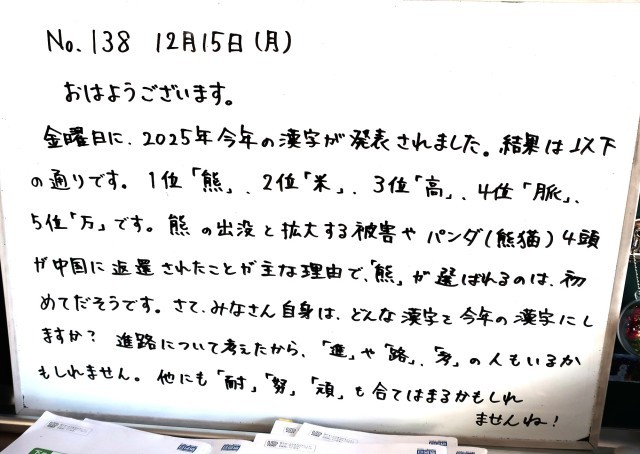 No.138 12月15日(月)
おはようございます。
金曜日に、2025年今年の漢字が発表されました。結果は以下
の通りです。1位「熊」、2位「米」、3位「高」、4位「脈」、
5位「万」です。熊の出没と拡大する被害やパンダ(熊猫)4頭
が中国に返還されたことが主な理由で、「熊」が選ばれるのは、初
めてだそうです。さて、みなさん自身は、どんな漢字を今年の漢字にし
ますか？ 進路について考えたから、「進」や「路」、「考」の人もいるか
もしれません。他にも「耐」「努」「頑」も合てはまるかもしれ
ませんね！